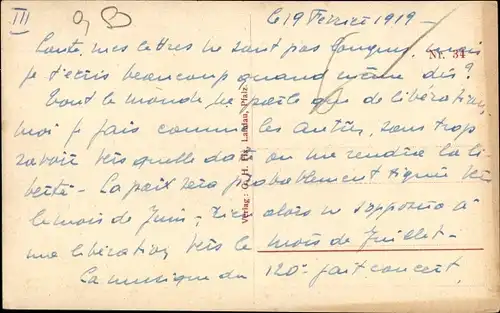 III
le 19 Février 1919 -
toutes mes lettres ne sont pas longues, mais
Nr. 34
je t'écris beaucoup quand même dis ?
Tout le monde, ne parle que de libération,
moi je fais comme les autres, sans trop
savoir vers quelle date on me rendra la li-
berté - La paix sera probablement signée vers
le mois de Juin, rien alors ne s'opposera à
ma libération vers le mois de Juillet -
La musique du 120e fait concert,
Verlag: G. H. Fix, Landau, Pfalz.